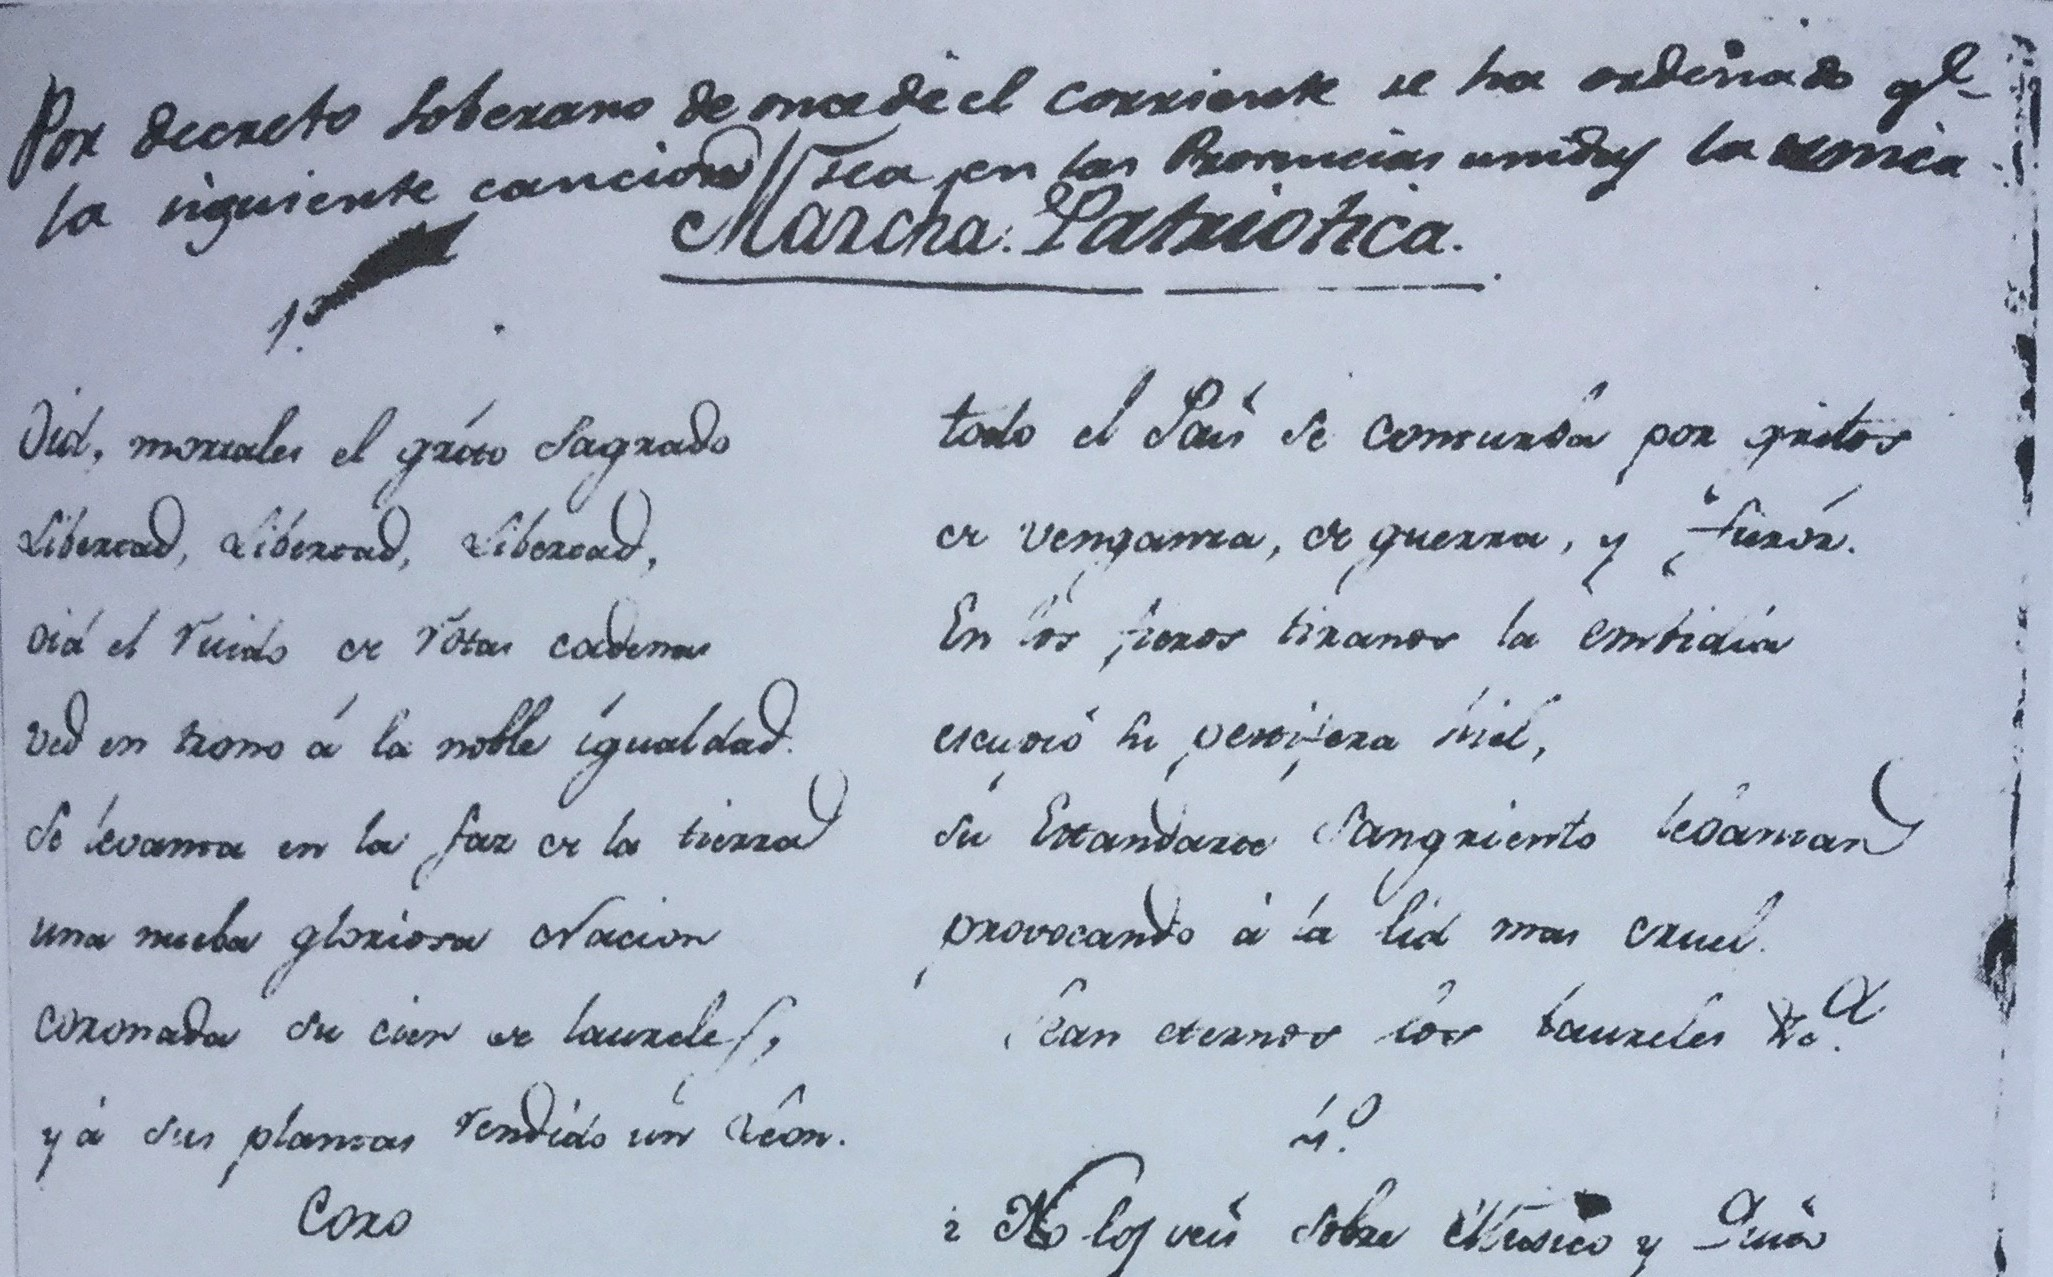 Por decreto soberano de once de el corriente se ha ordenado qe
la siguiente cancion sea en las Provincias unidas la unica
Marcha Patriotica.
1.º
Oid, mortales el grito sagrado
Libertad, Libertad, Libertad,
oid el ruido de rotas cadenas
ved en trono á la noble igualdad.
Se levanta en la faz de la tierra
una nueba gloriosa Nacion
coronada su cien de laureles,
y á sus plantas rendido un Leon.
Coro
todo el País se conturba por gritos
de venganza, de guerra, y furór.
En los fieros tiranos la embidia
escupió su pestifera hiel,
su Estandarte sangriento lebantan
provocando á la lid mas cruel.
Sean eternos los laureles &c.ª
4.º
¿ No los veis sobre Mexico y Quito